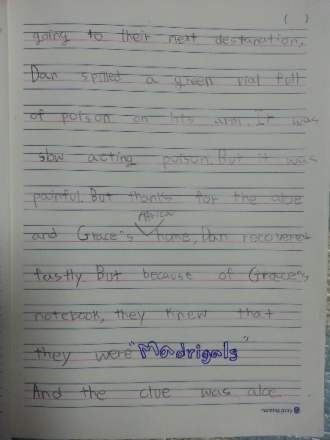 (  )
going to their next destanation,
Dan spilled a green vial full
of poison on his arm. It was
slow acting poison. But it was
painful. But thanks for the aloe
Africa
and Grace's home, Dan recovered
fastly. But because of Grace's
notebook, they knew that
they were "Madrigals"
And the clue was aloe.